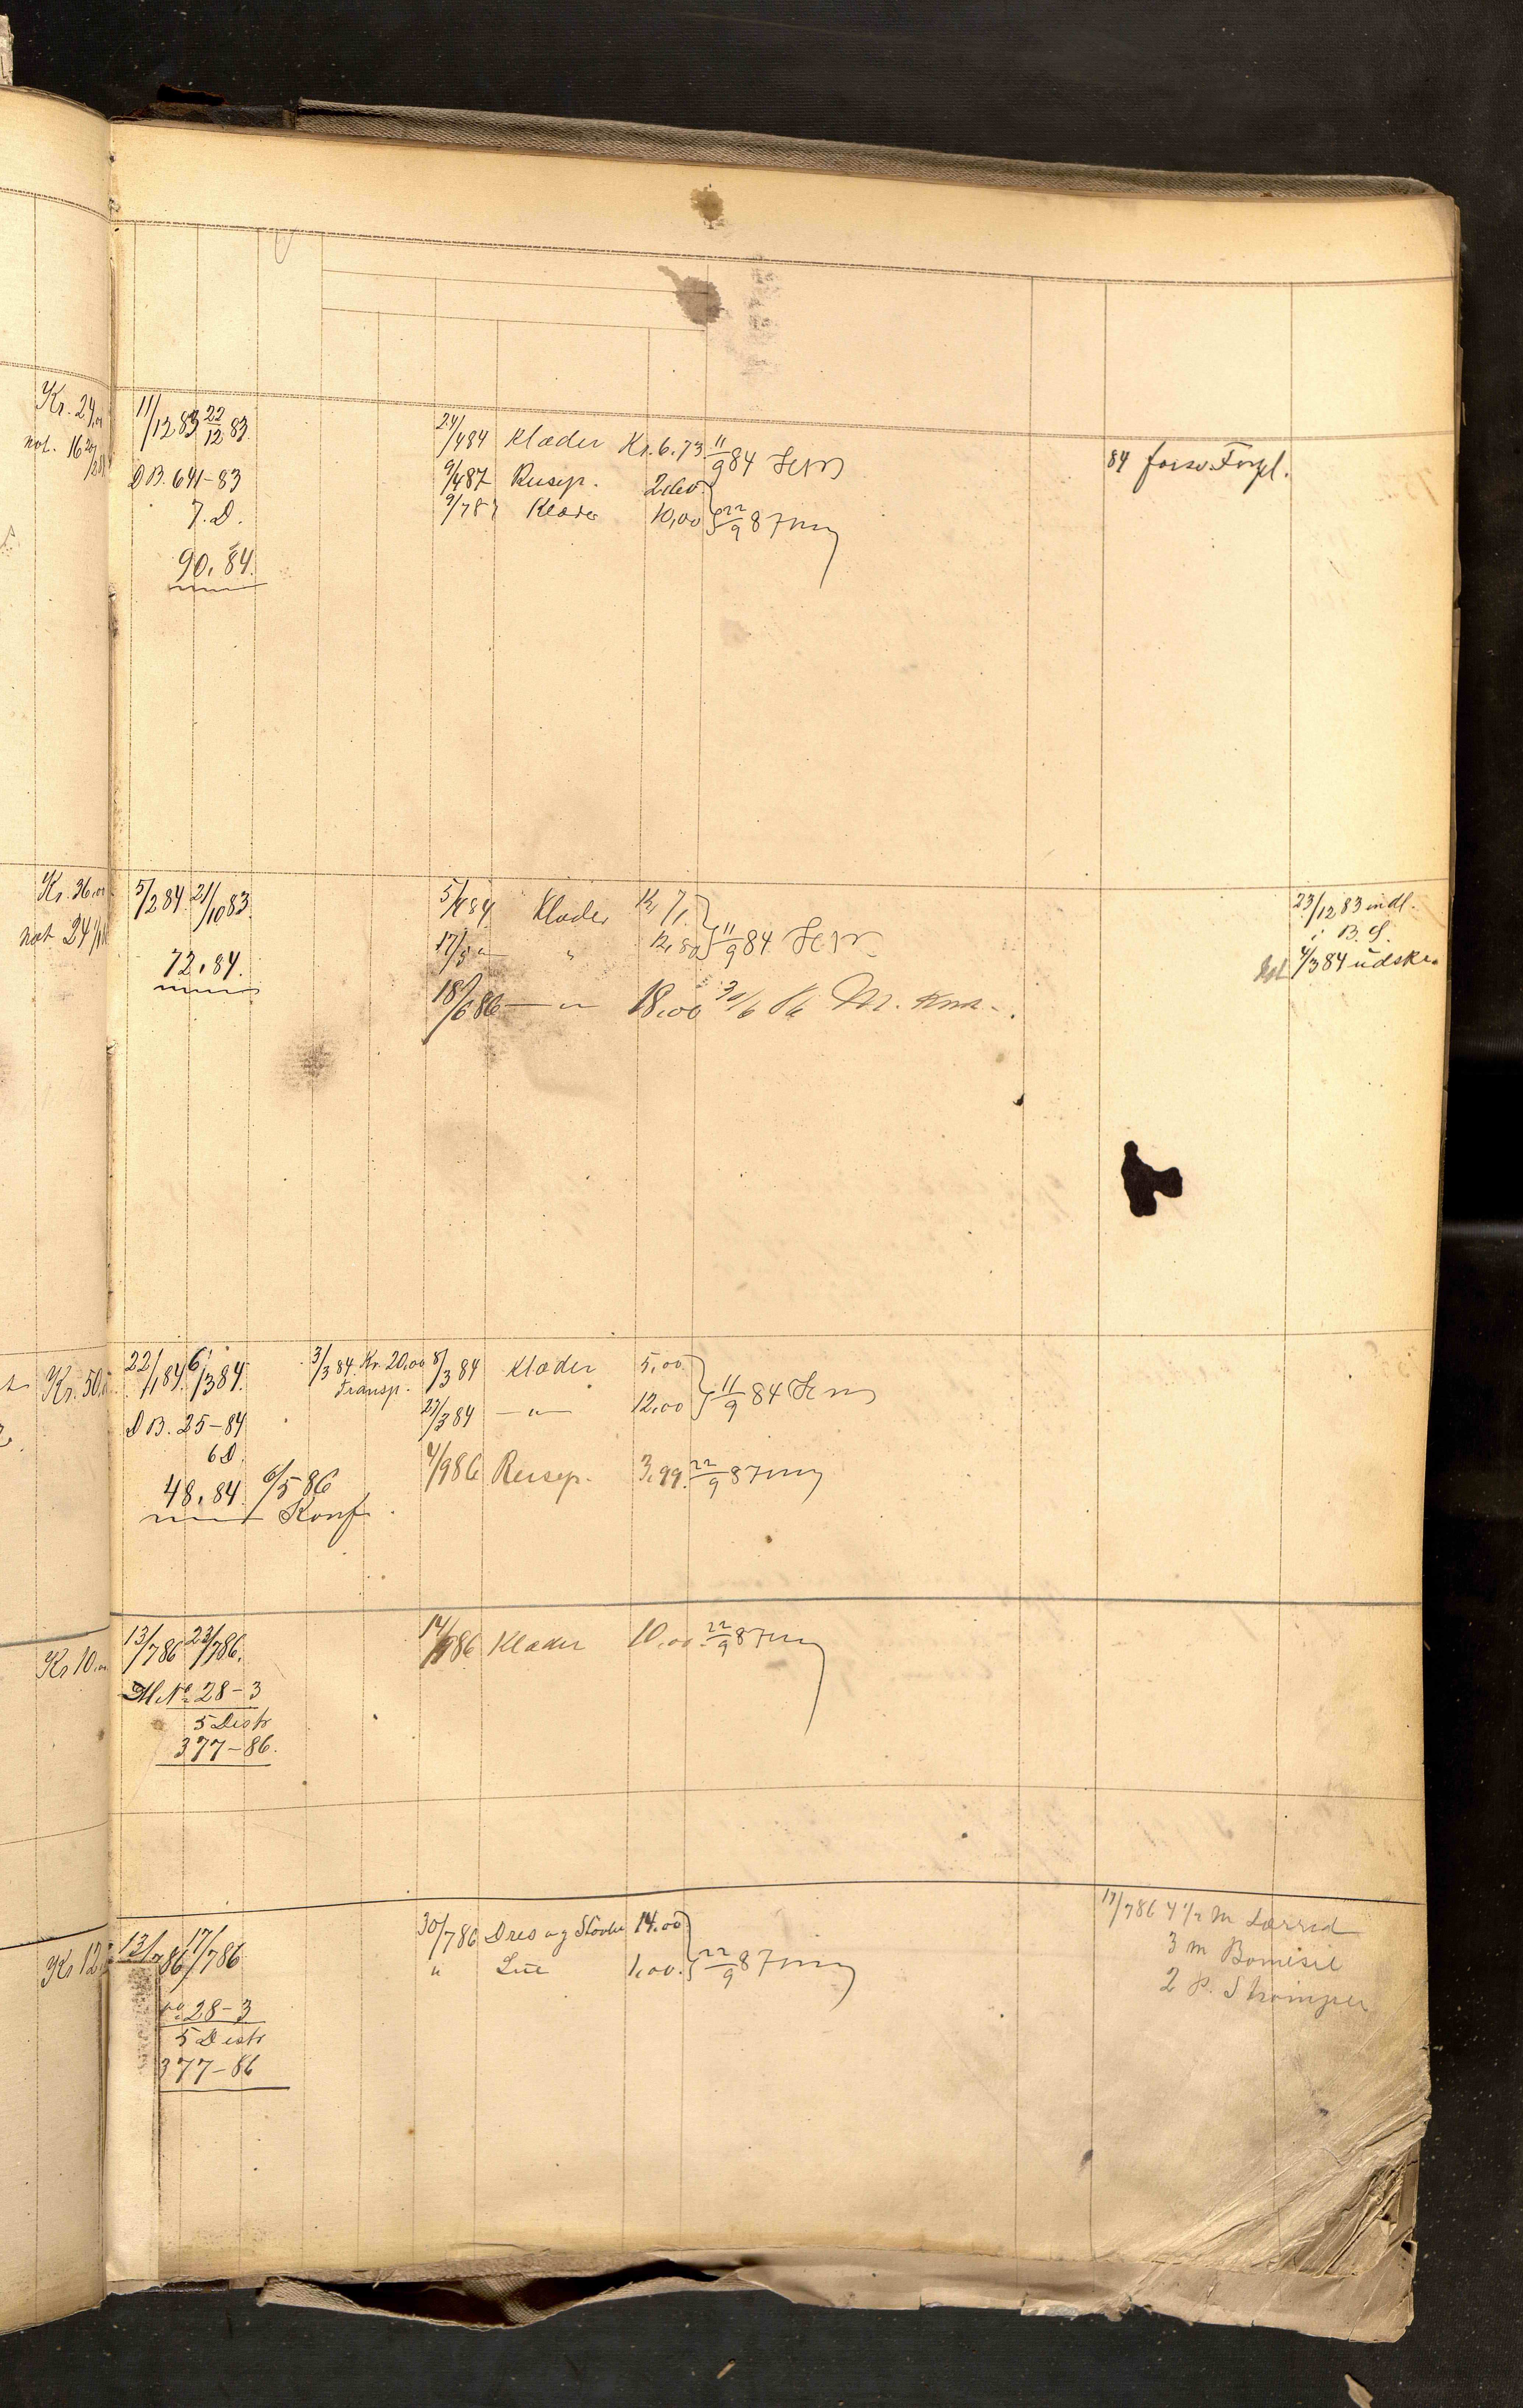 Kr. 24,00
not. 16
11/12 83 22/12 83.
D B. 641-83
7. D.
90. 84.
24/4 84 Klæder Kr. 6.73 11/9 84
9/4 87 Reisep. 2,60
9/7 87 Klæder 10,00 22/9 87
84 forsv. Forpl.
Kr. 36,00
not 24
5/2 84. 21/10 83.
72. 84.
5/4 84 Klæder Kr 7,
17/5 " " 12,50 11/9 84
18/6 86 — " 18,00 30/6 86 M.
23/12 83 indl.
i B. S.
4/3 84 udskr.
Kr. 50,
22/1 84. 6/3 84.
D B. 25-84
6 D.
48. 84. 6/5 86
Konf.
3/3 84. Kr. 20,00
Transp.
8/3 84 Klæder 5,00
27/3 84 — " — 12,00 11/9 84
4/9 86 Reisep. 3,99. 22/9 87
Kr 10,00
13/7 86 23/7 86.
Al. No. 28-3
5 Distr
377-86.
14/9 86 Klæder 10,00. 22/9 87
Kr 12
13/7 86 17/7 86
No. 28-3
5 Distr
377-86
30/7 86 Dres og Skoder 14.00
" Lue 1,00. 22/9 87
17/7 86 4 1/2 m Lærred
3 m Bomesie
2 P. Strømper